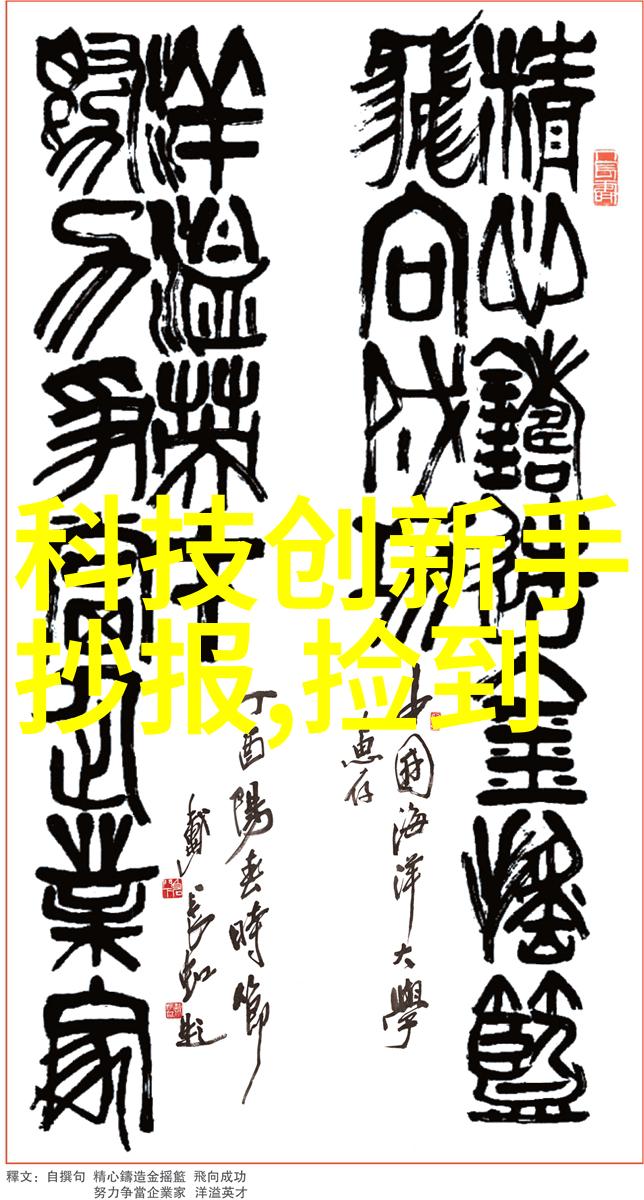 精心鑄造金摇籃
飛向成功
中國海洋大學
惠存
努力争當企業家
洋溢英才
丁酉陽春時節
戴長虹題
科技创新手
抄报,捡到
釋文：自撰句 精心鑄造金摇籃 飛向成功
努力争當企業家 洋溢英才